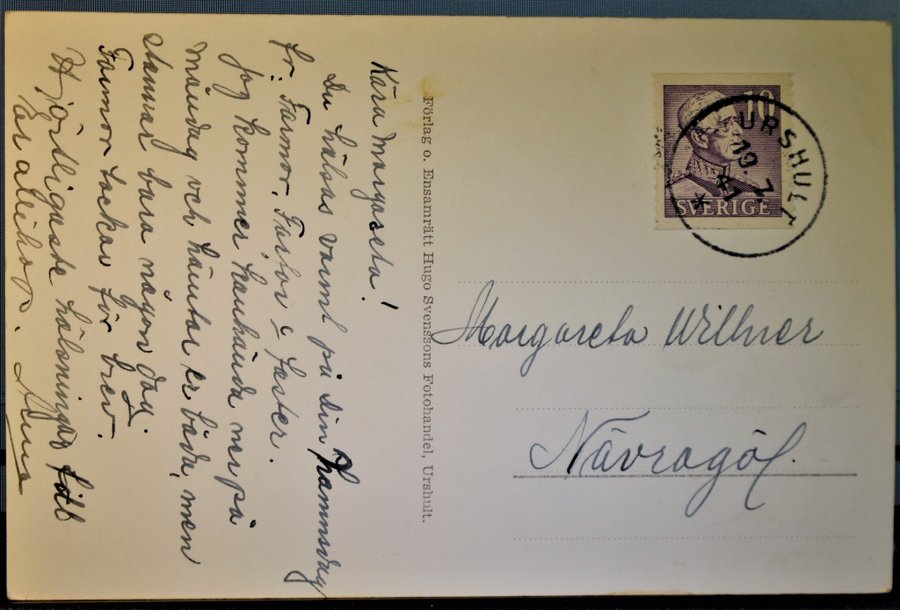 Kära Margareta!
Du hälsas varmt på din namnsdag
fr. Farmor, Farfar & faster.
Jag kommer kanhända ner på
måndag och hämtar er båda, men
stannar bara någon dag.
Farmor tackar för brev.
Hjärtligaste hälsningar till
Er allihop.
Förlag o. Ensamrätt Hugo Svenssons Fotohandel, Urshult.
10
SVERIGE
URSHULT
19.7.
41
*
Margareta Willner
Nävragöl.